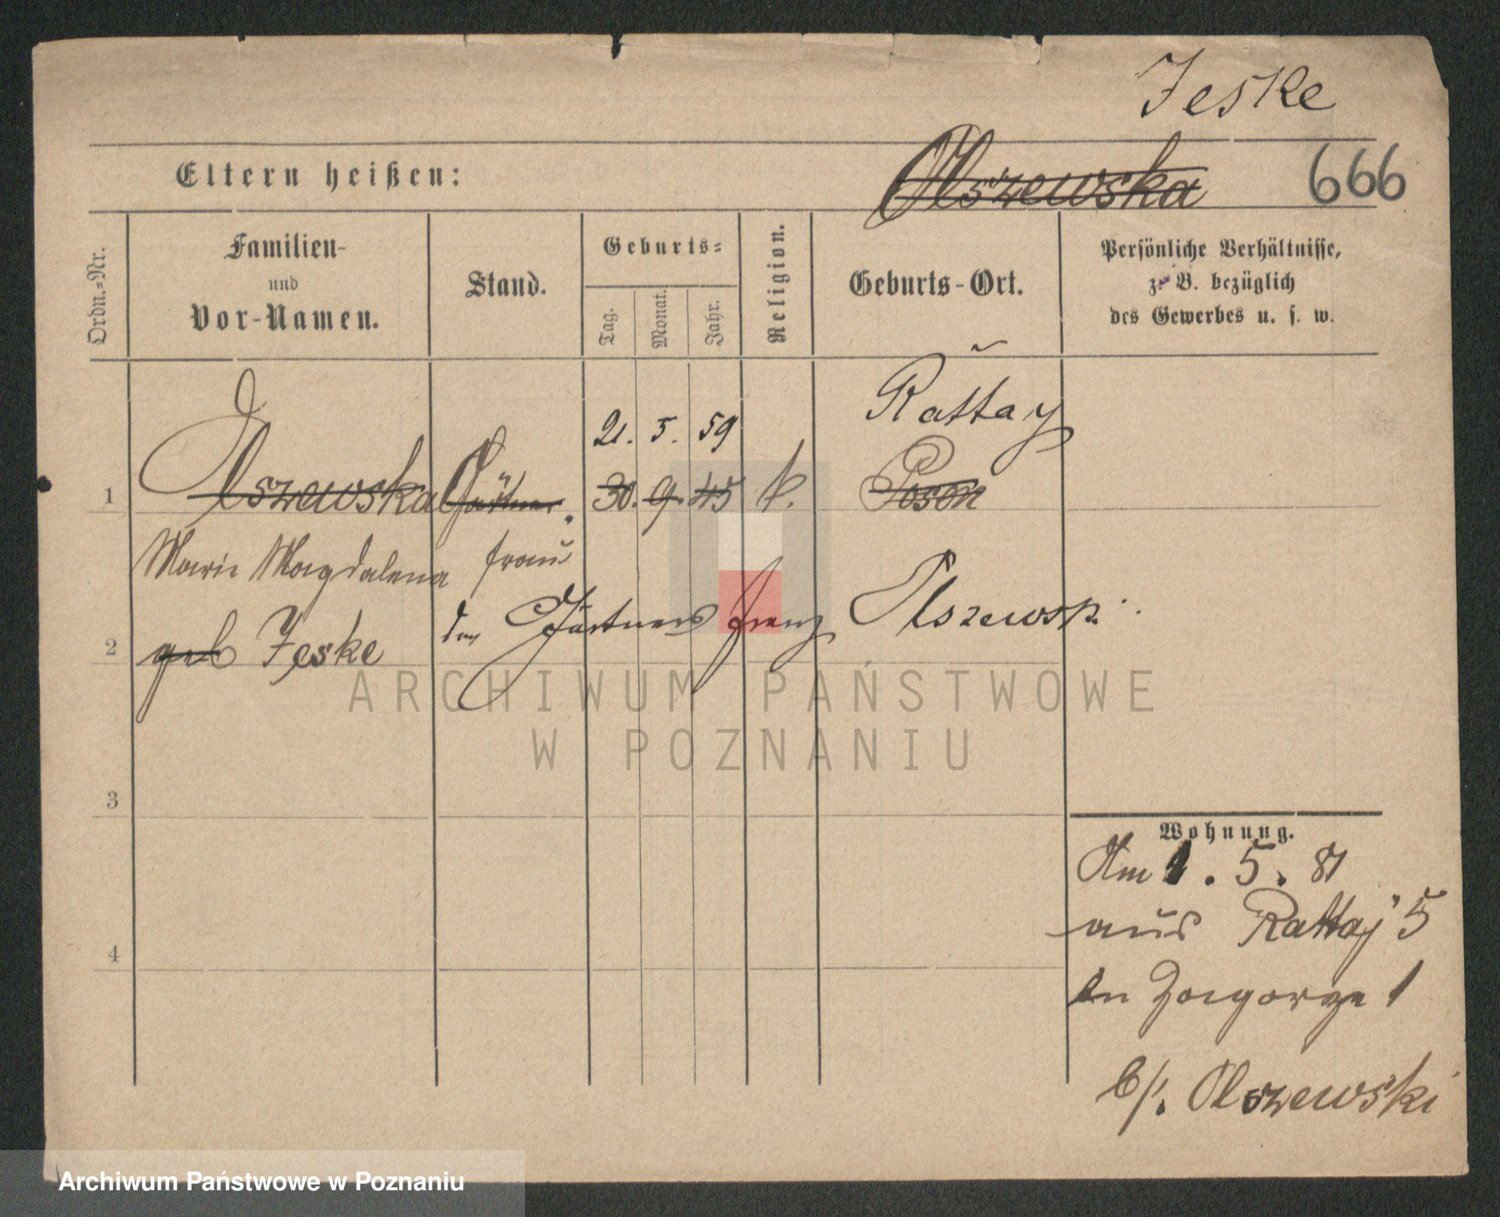 Jeske
Olszewska
666
Eltern heißen:
Ordn.-Nr.
Familien-
und
Vor-Namen.
Stand.
Geburts-
Tag.
Monat.
Jahr.
Religion.
Geburts-Ort.
Persönliche Verhältnisse,
z. B. bezüglich
des Gewerbes u. s. w.
Rattay
21. 5. 59
1 Olszewska Gärtner. 30. 9. 45 k. Posen
Marie Magdalena frau
2 geb Jeske des Gärtners Franz Olszewski.
3
4
Wohnung.
Am 1. 5. 81
aus Rattaj 5
in Zagorze 1
b/. Olszewski
ARCHIWUM PAŃSTWOWE
W POZNANIU
Archiwum Państwowe w Poznaniu